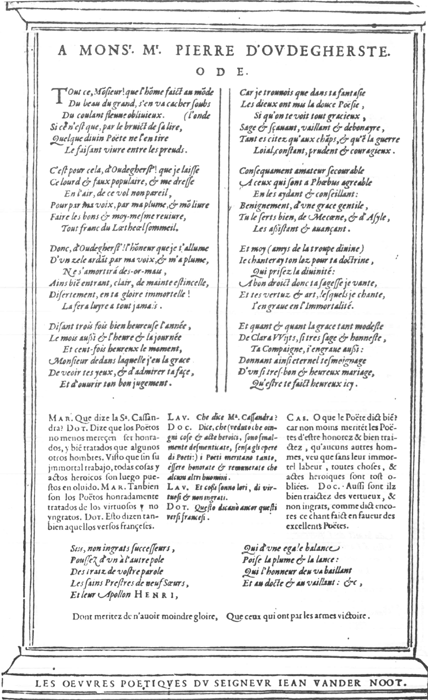 A MONSr. Mr. PIERRE D'OVDEGHERSTE.
O D E.
Tout ce, Mõsieur! que l'hõme faict au mõde
Du beau du grand, s'en va cacher soubs
Du coulant fleuue obliuieux. (l'onde
Si cè n'est que, par le bruict de sa lire,
Quelque diuin Poëte ne l'en tire
Le faisant viure entre les preuds.
C'est pour cela, d'Oudegherst! que je laisse
Ce lourd & faux populaire, & me dresse
En l'air, de ce vol nonpareil,
Pour par ma voix, par ma plume, & mõ liure
Faire les bons & moy-mesme reuiure,
Tout franc du Lætheœl sommeil.
Donc, d'Oudegherst! l'hõneur que je t'allume
D'vn zele ardãt par ma voix, & m'a plume,
Ne s'amortirá des-or-mau,
Ains biẽ entrant, clair, de mainte estincelle,
Disertement, en ta gloire immortelle!
La fera luyre a tout jamais.
Disant trois fois bien heureuse l'année,
Le mois aussi & l'heure & la journée
Et cent-fois heureux le moment,
Monsieur dedans laquelle j'eu la grace
De veoir tes yeux, & d'admirer ta façe,
Et d'ouurir ton bon jugement.
Car je trouuois que dans ta fantasie
Les dieux ont mis la douce Poësie,
Si qu'on te voit tout gracieux,
Sage & sçauant, vaillant & debonayre,
Tant es citez, qu'aux chãps, & qu'ẽ la guerre
Loial, constant, prudent & courageux.
Consequament amateur secourable
A ceux qui sont a Phœbus agreable
En les aydant & conseillant:
Benignement, d'vne grace gentile,
Tu le serts bien, de Mecœne, & d'Asyle,
Les assistant & auançant.
Et moy (amys de la troupe diuine)
Ie chanteray ton loz pour ta doctrine,
Qui prisez la diuinité:
A bon droict donc ta sagesse je vante,
Et tes vertuz & art, lesquels je chante,
I'engraue en l'Immortalité.
Et quant & quant la grace tant modeste
De Clara VVyts, si tres sage & honneste,
Ta Compaigne, j'engraue aussi:
Donnant ainsi eternel tesmoignage
D'vn si tres-bon & heureux mariage,
Qu'estre te faict heureux icy.
MAR. Que dize la Sa. Cassan-
dra? DOT. Dire que los Poëtos
no menos merecen ser honta-
dos, y biẽ tratados que algunos
otros hombres. Visto que sin su
jmmortal trabajo, todas cosas y
actos heroicos son luego pue-
stos en oluido. MAR. Tanbien
son los Poëtos honradamente
tratados de los virtuosos y no
yngratos. DOT. Esto dizen tan-
bien aquellos versos françeses.
LAV. Che dice Ma. Cassandra?
DOC. Dice, che (veduto che om-
gni cose & acte heroici, sono sinal-
mente desmenticate, senza gli opere
di Poeti:) i Poeti meritano tanto,
essere honorate & remunerate che
alcun altri huomini.
LAV. Et cosi sono loti, di vir-
tuosi & non ingrati.
DOT. Questo dicanò ancor questi
versi francesi.
CAS. O que le Poëte dict biẽ?
car non moins meritẽt les Poë-
tes d'estre honorez & bien trai-
ctez, qu'aucuns autres hom-
mes, veu que sans leur immor-
tel labeur, toutes choses, &
actes heroiques sont tost o-
bliées. DOC. Aussi sont ilz
bien traictez des vertueux, &
non ingrats, comme dict enco-
res ce chant faict en faueur des
excellents Poëtes.
Sus, non ingrats successeurs,
Poussez d'vn à l'autre pole
Des iraiz de vostre parole
Les sains Prestres de neuf Sœurs,
Et leur Apollon HENRI,
Qui d'vne egale balance
Poise la plume & la lance:
Qui l'honneur deu va baillant
Et au docte & au vaillant: &c,
Dont meritez de n'auoir moindre gloire, Que ceux qui ont par les armes victoire.
LES OEVVRES POETIQVES DV SEIGNEVR IEAN VANDER NOOT.